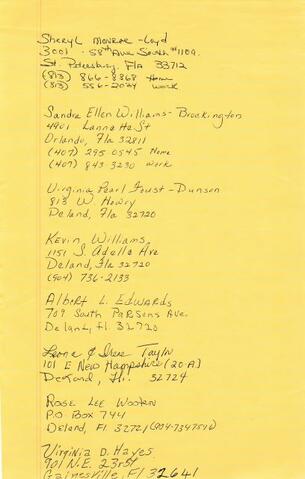 Sheryl Monroe-Loyd
3001 - 58th Ave South #1109
St. Petersburg, Fla 33712
(813) 866-8368 Home
(813) 556-2024 Work
Sandra Ellen Williams-Brockington
4901 Lanna Ha St
Orlando, Fla 32811
(407) 295 0545 Home
(407) 843 3230 Work
Virginia Pearl Foust-Dunson
813 W. Howry
Deland, Fla 32720
Kevin Williams
1151 S. Adelle Ave
Deland, Fla 32720
(904) 736-2133
Albert L. Edwards
709 South Parsons Ave.
Deland, Fl 32720
Leone & Irene Taylor
101 E New Hampshire (20-A)
Deland, Fl. 32724
Rose Lee Wooten
P.O. Box 744
Deland, Fl 32721 (904-7347516)
Virginia D. Hayes
901 N.E. 23rd St
Gainesville, Fl 32641